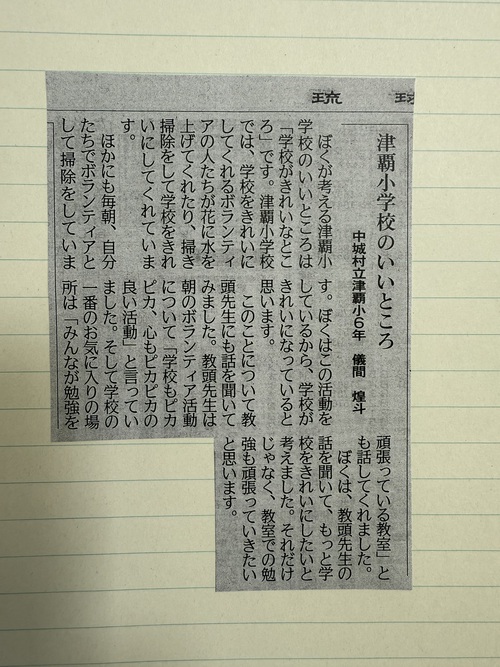 琉
津覇小学校のいいところ
中城村立津覇小6年　儀間　煌斗
ぼくが考える津覇小
学校のいいところは
「学校がきれいなとこ
ろ」です。津覇小学校
では、学校をきれいに
してくれるボランティ
アの人たちが花に水を
上げてくれたり、掃き
掃除をして学校をきれ
いにしてくれていま
す。
ほかにも毎朝、自分
たちでボランティアと
して掃除をしていま
す。ぼくはこの活動を
しているから、学校が
きれいになっていると
思います。
このことについて教
頭先生にも話を聞いて
みました。教頭先生は
朝のボランティア活動
について「学校もピカ
ピカ、心もピカピカの
良い活動」と言ってい
ました。そして学校の
一番のお気に入りの場
所は「みんなが勉強を
頑張っている教室」と
も話してくれました。
ぼくは、教頭先生の
話を聞いて、もっと学
校をきれいにしたいと
考えました。それだけ
じゃなく、教室での勉
強も頑張っていきたい
と思います。